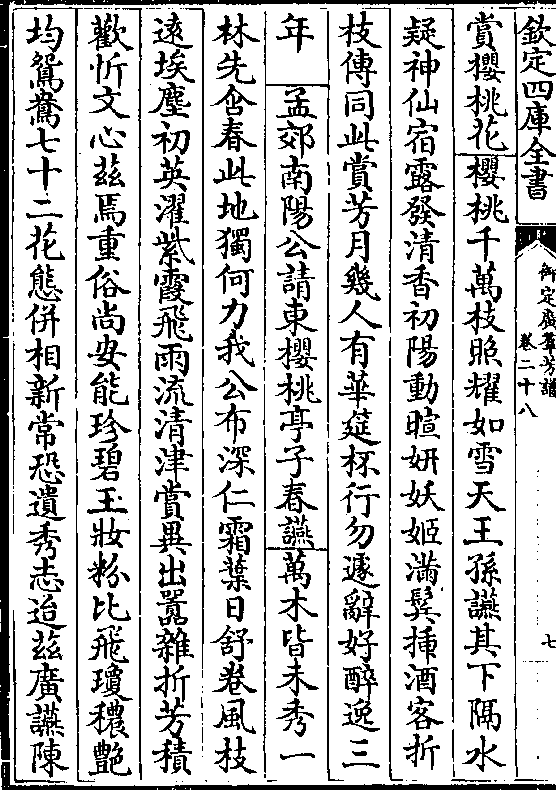 欽定四庫全書
御定廣羣芳譜
卷二十八
七
賞櫻桃花 櫻桃千萬枝照耀如雪天王孫讌其下隔水
疑神仙宿露發清香初陽動暄妍妖姬滿髩揷酒客折
枝傳同此賞芳月幾人有華筵杯行勿遽辭好醉逸三
年 孟郊南陽公請東櫻桃亭子春讌 萬木皆未秀一
林先含春此地獨何力我公布深仁霜葉日舒卷風枝
遠埃塵初英濯紫霞飛雨流清津賞異出囂雜折芳積
歡忻文心茲焉重俗尚安能珍碧玉妝粉比飛瓊穠艶
均鴛鴦七十二花態併相新常恐遺秀志迨茲廣讌陳